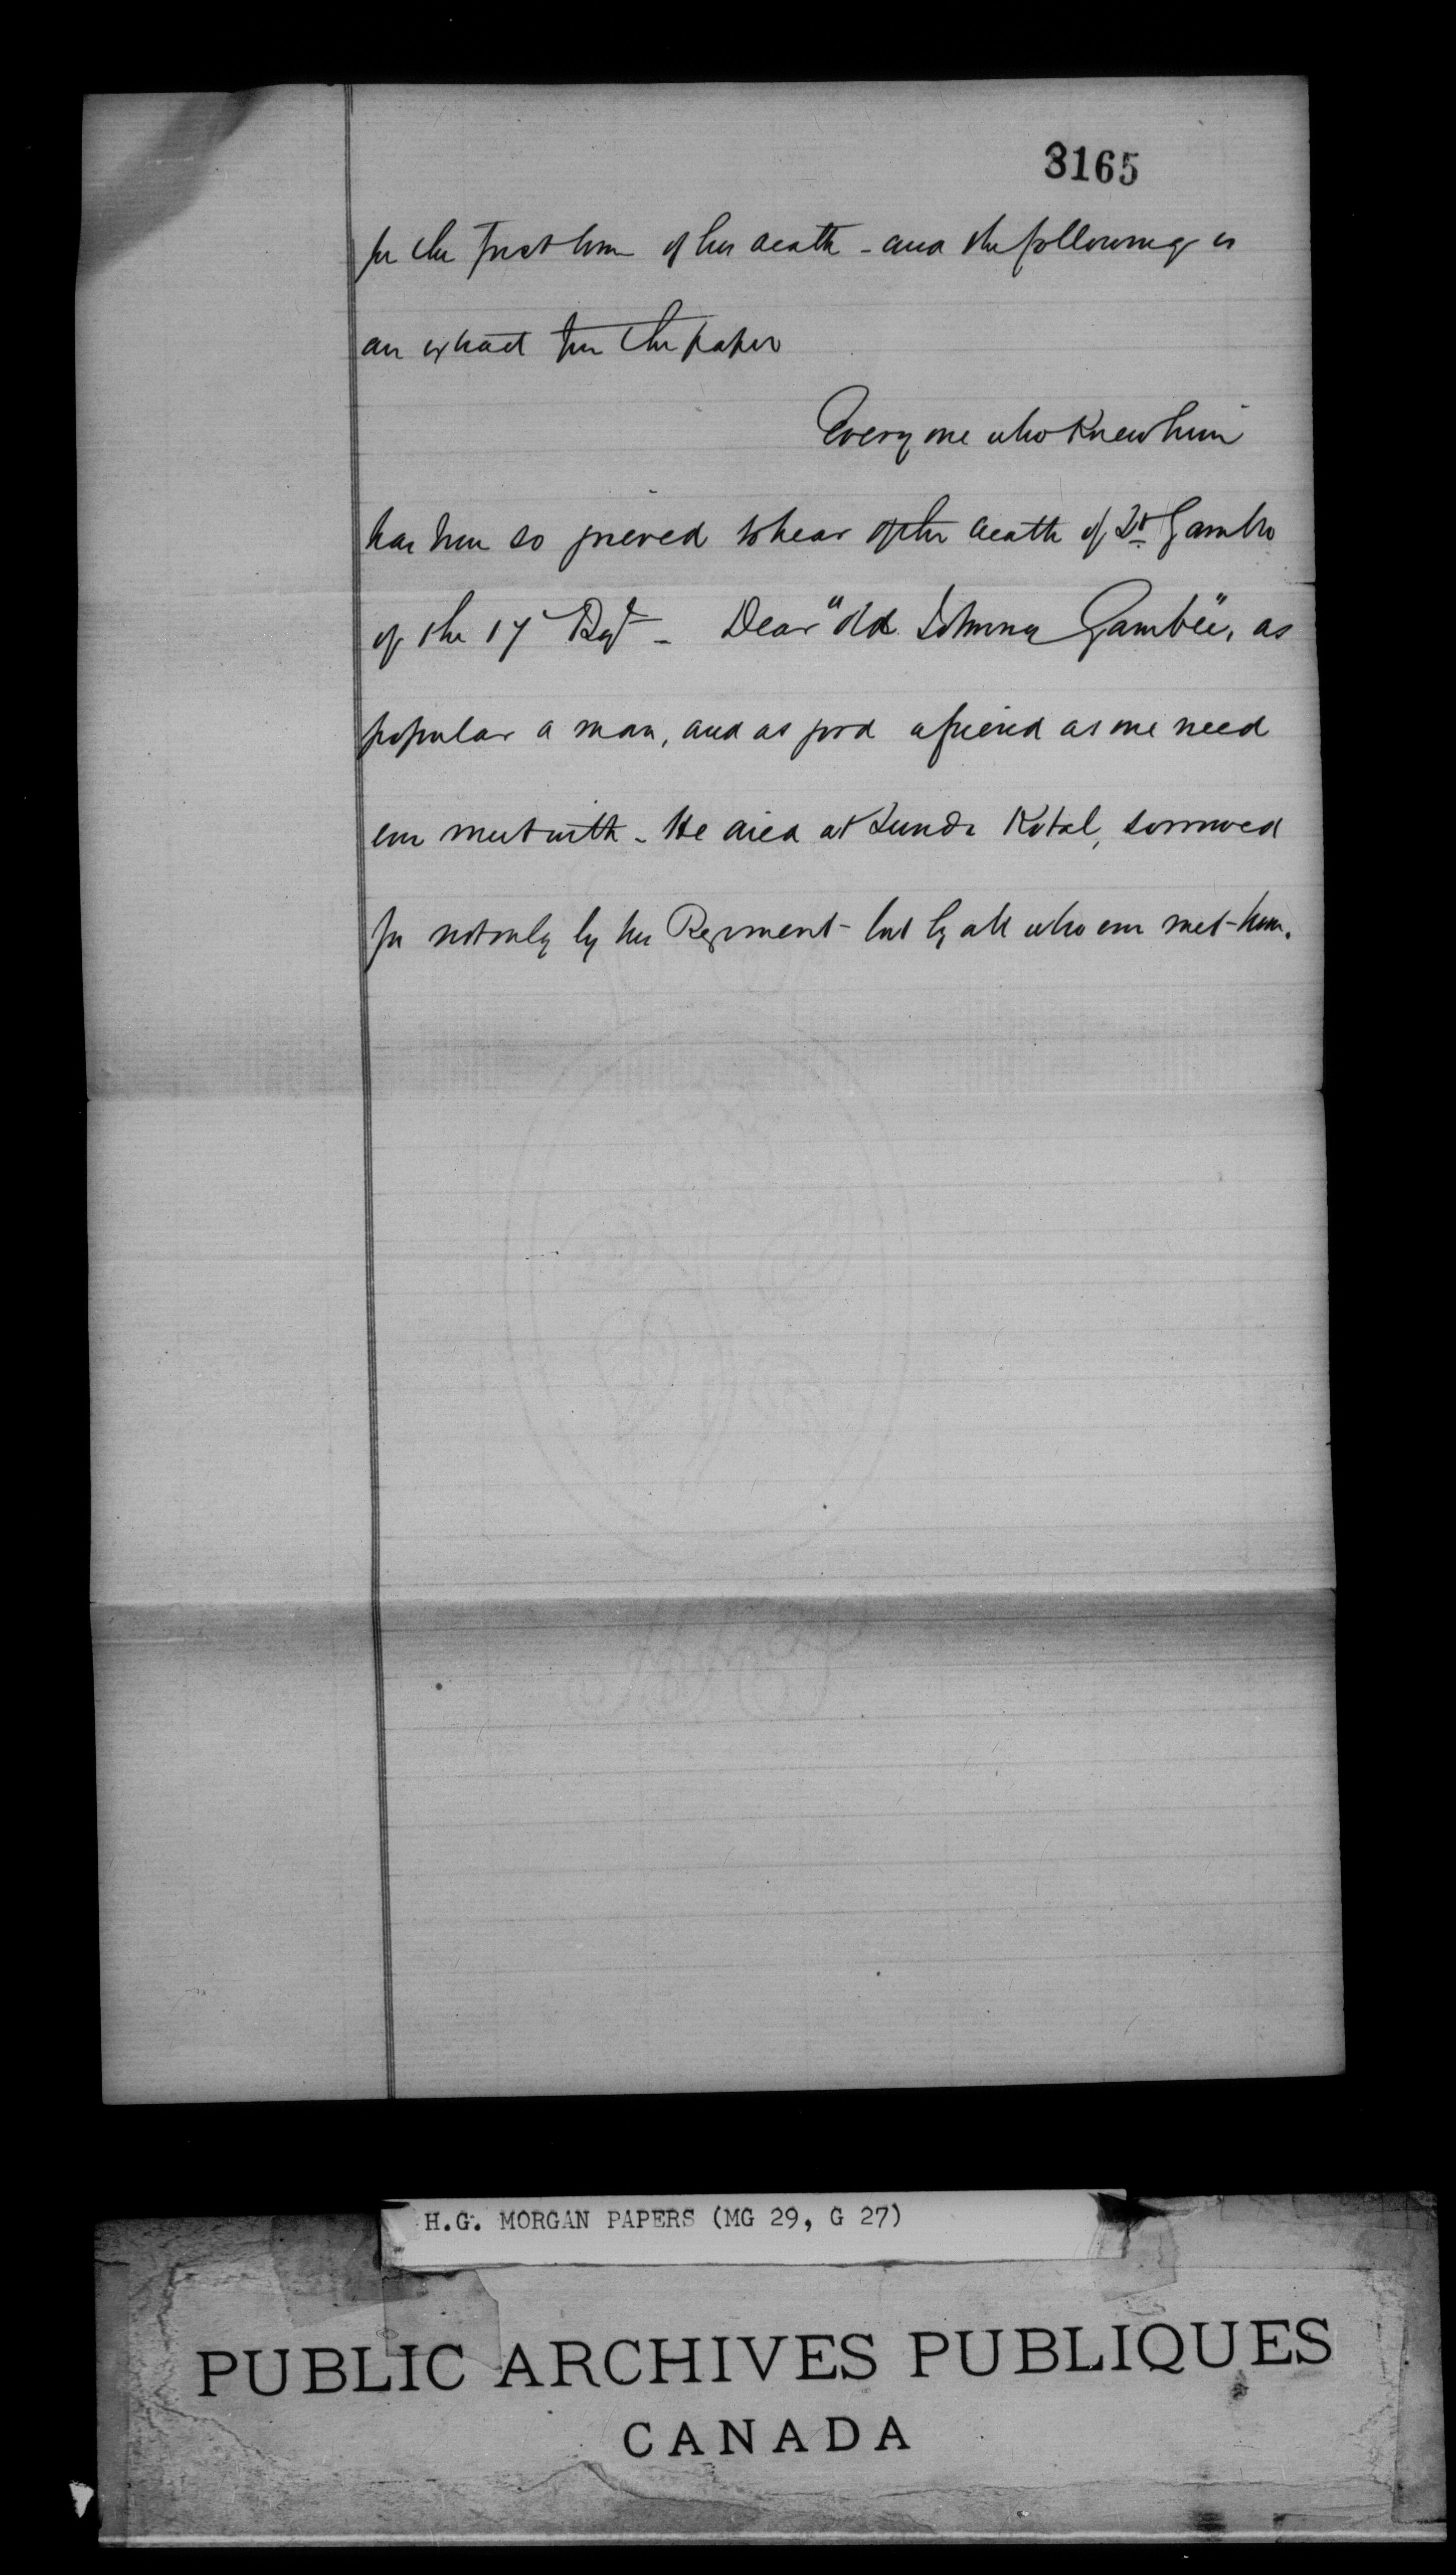 3165
for the first time of his death - and the following is
an extract from the paper
Every one who knew him
has been so grieved to hear of the death of Lt Gamble
of the 17 Regt - Dear "old Johnny Gamble", as
popular a man, and as good a friend as one need
ever meet with - He died at Lundi Kotal, sorrowed
for not only by his Regiment - but by all who ever met him.
H.G. MORGAN PAPERS (MG 29, G 27)
PUBLIC ARCHIVES PUBLIQUES
CANADA